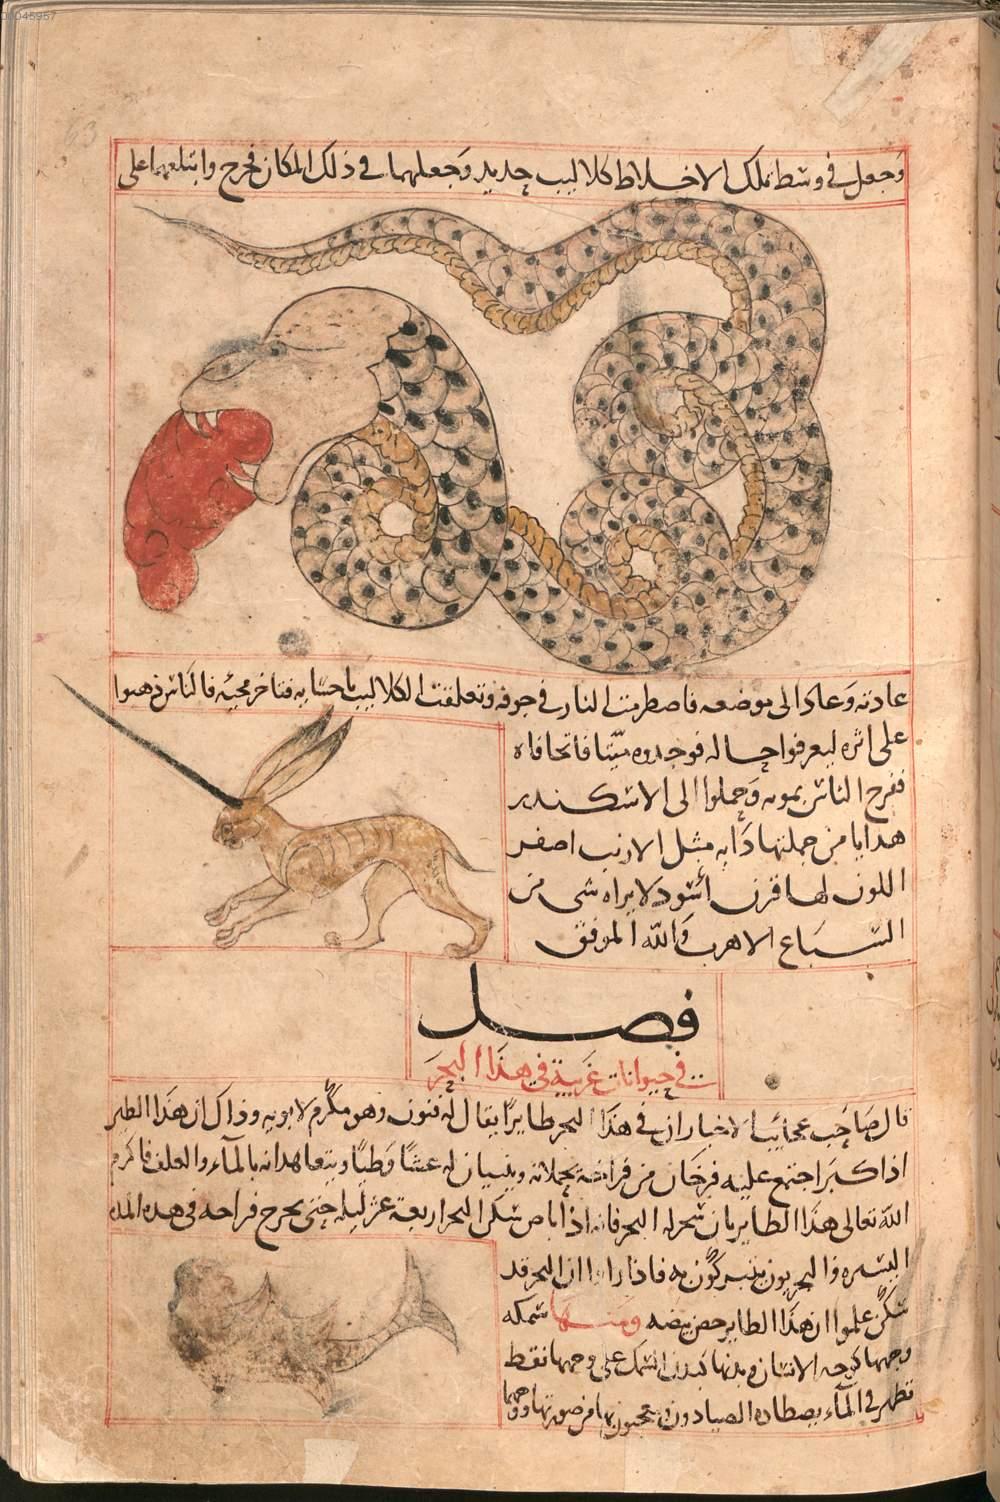 00045957
63
وجعل في وسط تلك الاخلاط كلاليب حديد وجعلهما في ذلك المكان فخرج وابتلعهما على
عادته وعاد الى موضعه فاضطرمت النار في جوفه وتعلقت الكلاليب باحشايه فتاخر مجيئه فالناس ذهبوا
على اثره ليعرفوا حاله فوجدوه ميتا فاتحا فاه
ففرح الناس بموته وحملوا الى الاسكندر
هدايا من جملتها دابة مثل الارنب اصفر
اللون لها قرن اسود لا يراه شى من
السباع الا هرب والله الموفق
فصل
في حيوانات غريبة في هذا البحر
قال صاحب عجائب الاخبار ان في هذا البحر طايرا يقال له فنون وهو مكرم لابويه وذاك ان هذا الطير
اذا كبرا اجتمع عليه فرخان من فراخه يحملانه ويبنيان له عشا وطيا ويتعاهدانه بالماء والعلف فاكرم
الله تعالى هذا الطاير بان سخر له البحر فانه اذا باض سكن البحر اربعة عشر ليلة حتى يخرج فراخه في هذه المدة
اليسيره والبحريون يتبركون به فاذا راوا ان البحر قد
سكن علموا ان هذا الطاير حضن بيضه ومنها سمكه
وجهها كوجه الانسان وبدنها كبدن السمك على وجهها نقط
تظهر في الماء يصطاده الصيادون ويتعجبون من صورتها